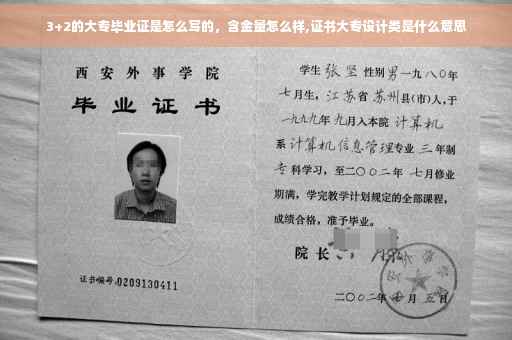 3+2的大专毕业证是怎么写的，含金量怎么样,证书大专设计类是什么意思
西安外事学院
毕业证书
证书编号:0209130411
学生 张坚 性别 男 一九八〇年
七月生，江苏省 苏州县(市)人，于
一九九九年 九月入本院 计算机
系 计算机信息管理专业 三 年制
专科学习，至二〇〇二年 七月修业
期满，学完教学计划规定的全部课程，
成绩合格，准予毕业。
院长
二〇〇二年 月五日